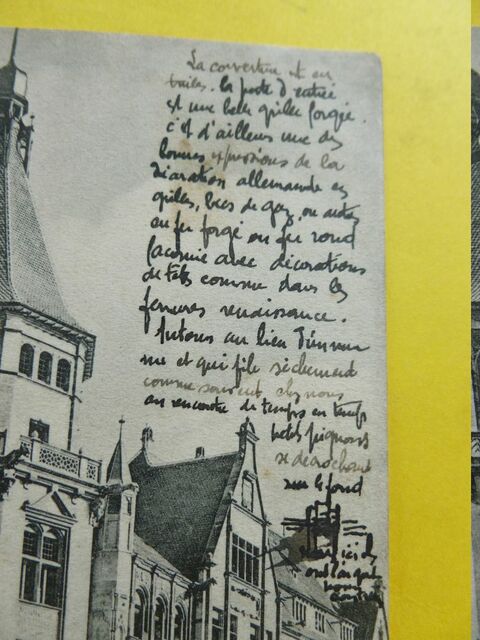 La couverture est en
tuiles. la porte d'entrée
est une belle grille forgée.
c'est d'ailleurs une des
bonnes expressions de la
décoration allemande en
grilles, becs de gaz, ou autres
en fer forgé ou fer rond
façonné avec décorations
de tôle comme dans les
ferrures renaissance.
au lieu d'un mur
et qui file sèchement
comme souvent chez nous
on rencontre de temps en temps
petits pignons
se décrochant
sur le fond
ici
nous